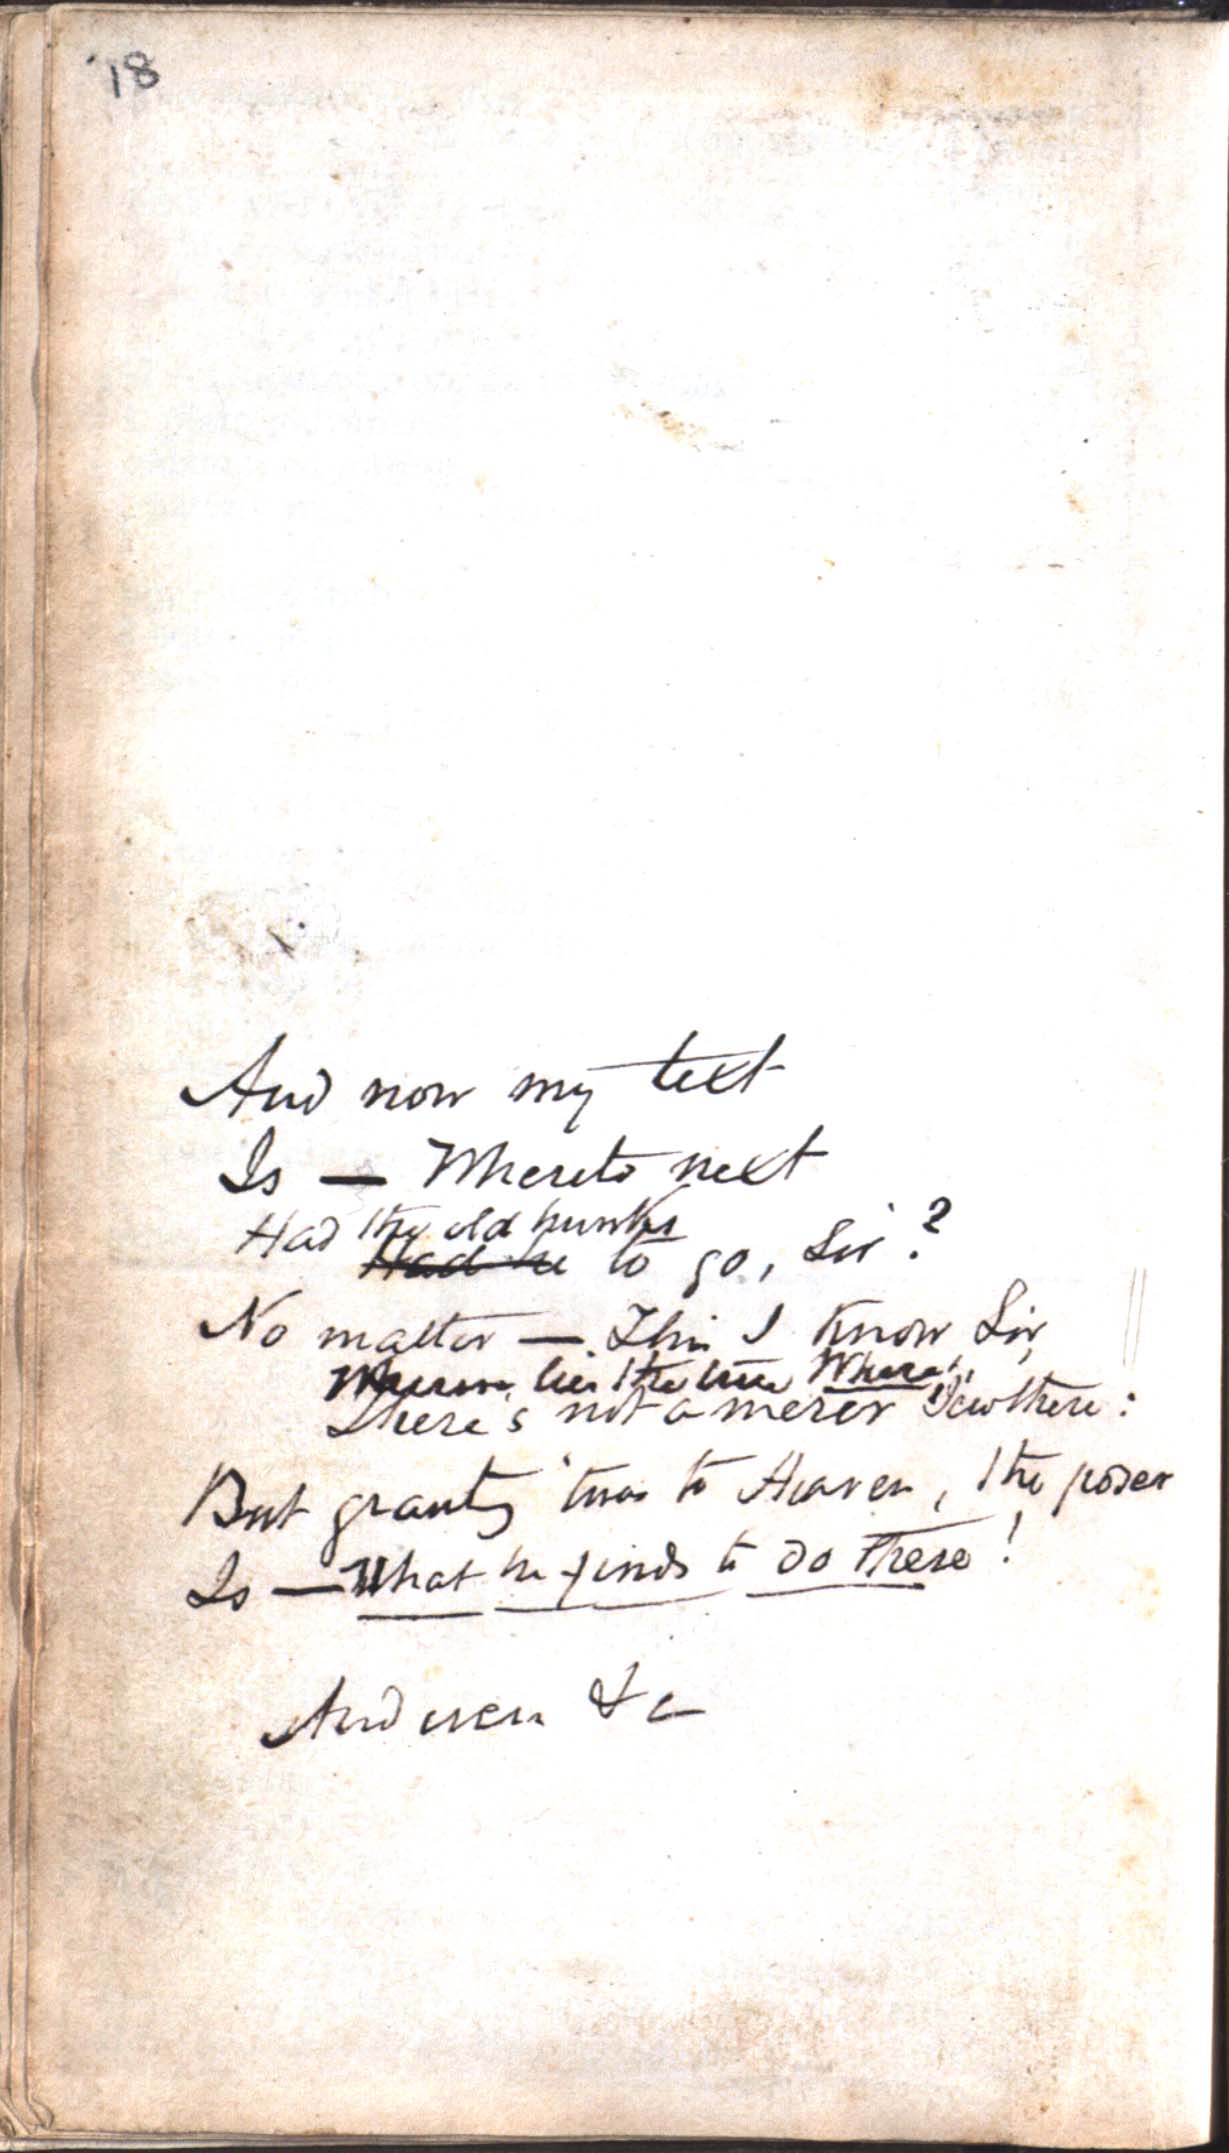 18
And now my text
Is — Whereto next
Had the old hunks
Had he to go, Sir?
No matter — This I know Sir,
lies the true Where,
There's not a merer there:
But granting 'twas to Heaven, the poser
Is — What he finds to do There!
And even &c